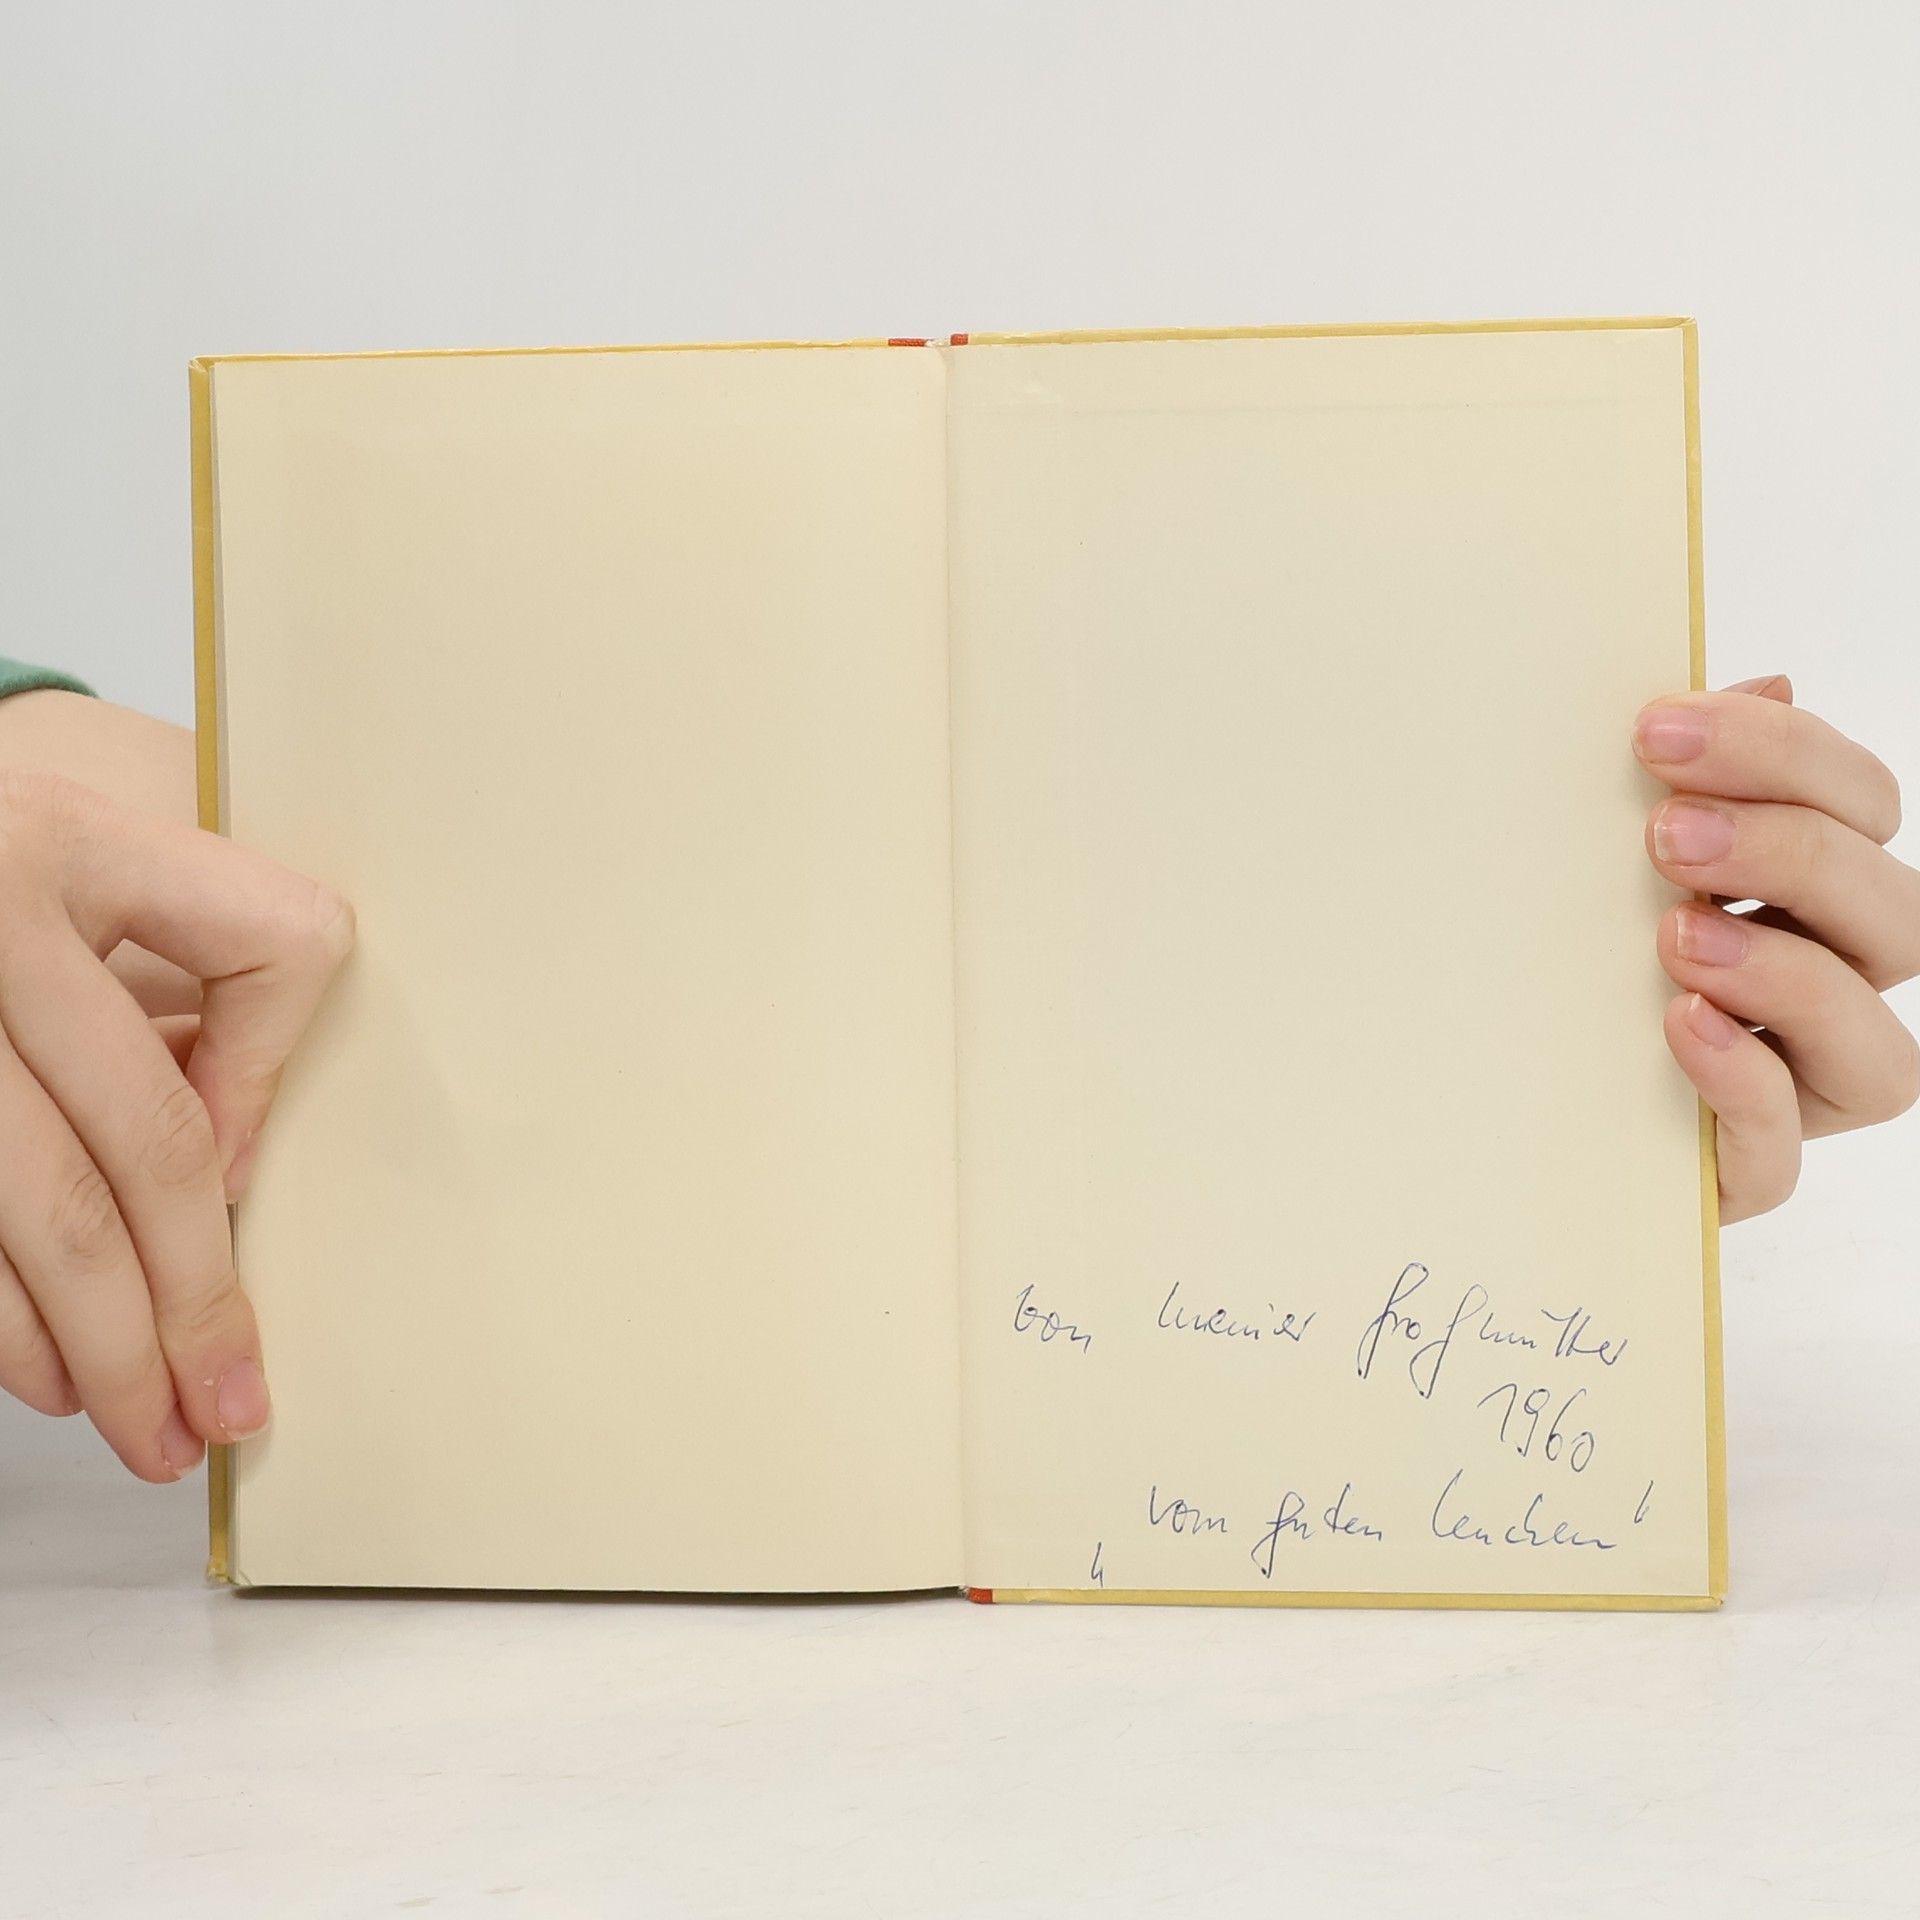 von meiner Großmutter
1960
„vom guten Lenchen“